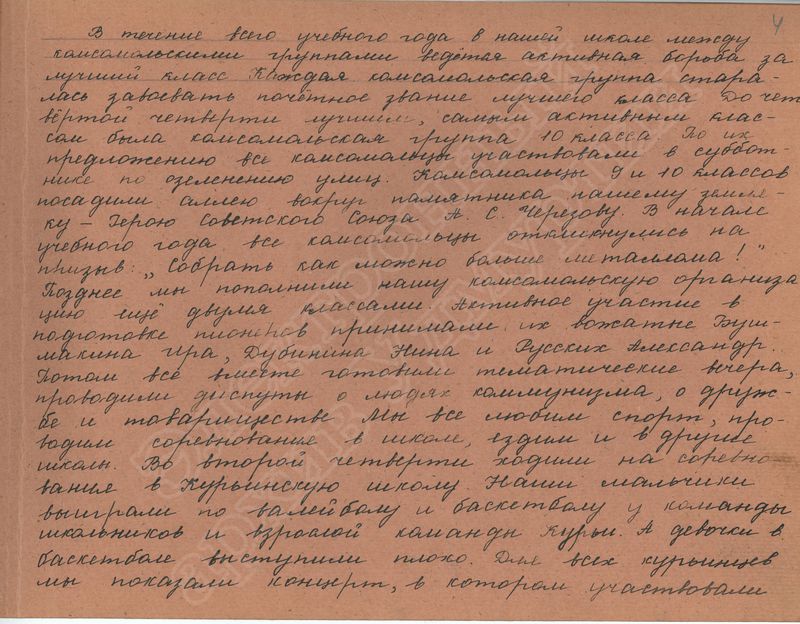 4
В течение всего учебного года в нашей школе между
комсомольскими группами ведётся активная борьба за
лучший класс Каждая комсомольская группа стара-
лась завоевать почётное звание лучшего класса До чет
вёртой четверти лучшим, самым активным клас-
сом была комсомольская группа 10 класса. По их
предложению все комсомольцы участвовали в суббот-
нике по озеленению улиц. Комсомольцы 9 и 10 классов
посадили аллею вокруг памятника нашему земля-
ку – Герою Советского Союза А. С. Черезову. В начале
учебного года все комсомольцы откликнулись на
призыв: „Собрать как можно больше металлома!"
Позднее мы пополнили нашу комсомольскую организа
цию ещё двумя классами. Активное участие в
подготовке пионеров принимали их вожатые Буш-
макина Ира, Дубинина Нина и Русских Александр.
Потом все вместе готовили тематические вечера,
проводили диспуты о людях коммунизма, о друж-
бе и товариществе Мы все любим спорт, про-
водим соревнование в школе, ездим и в другие
школы. Во второй четверти ходили на соревно
вание в Курьинскую школу. Наши мальчики
выиграли по валейболу и баскетболу у команды
школьников и взрослой команды Курьи. А девочки в
баскетболе выступили плохо. Для всех курьинцев
мы показали концерт, в котором участвовали